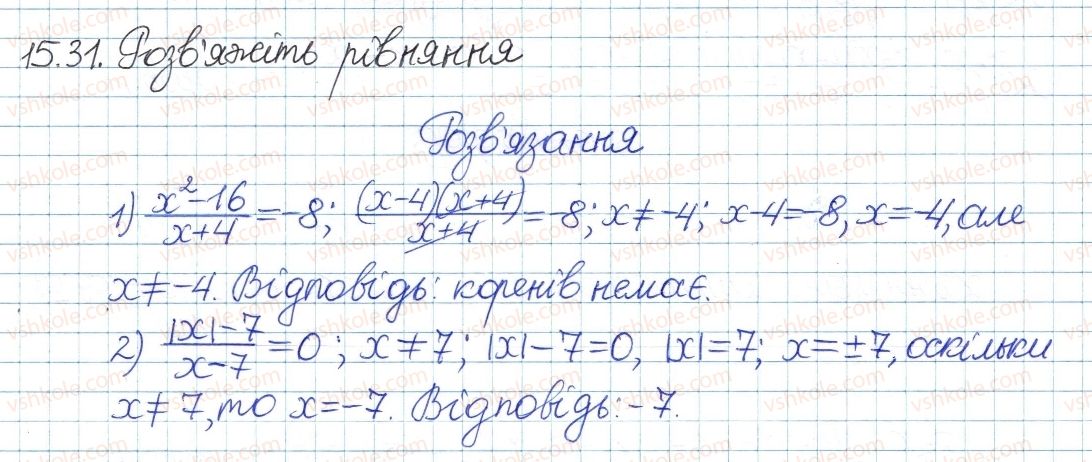 15.31. Розв'яжіть рівняння
Розв'язання
1) (x²-16)/(x+4) = -8; ((x-4)(x+4))/(x+4) = -8; x ≠ -4; x-4=-8, x=-4, але
x ≠ -4. Відповідь: коренів немає.
2) (|x|-7)/(x-7) = 0; x ≠ 7; |x|-7=0, |x|=7; x=±7, оскільки
x ≠ 7, то x=-7. Відповідь: -7.